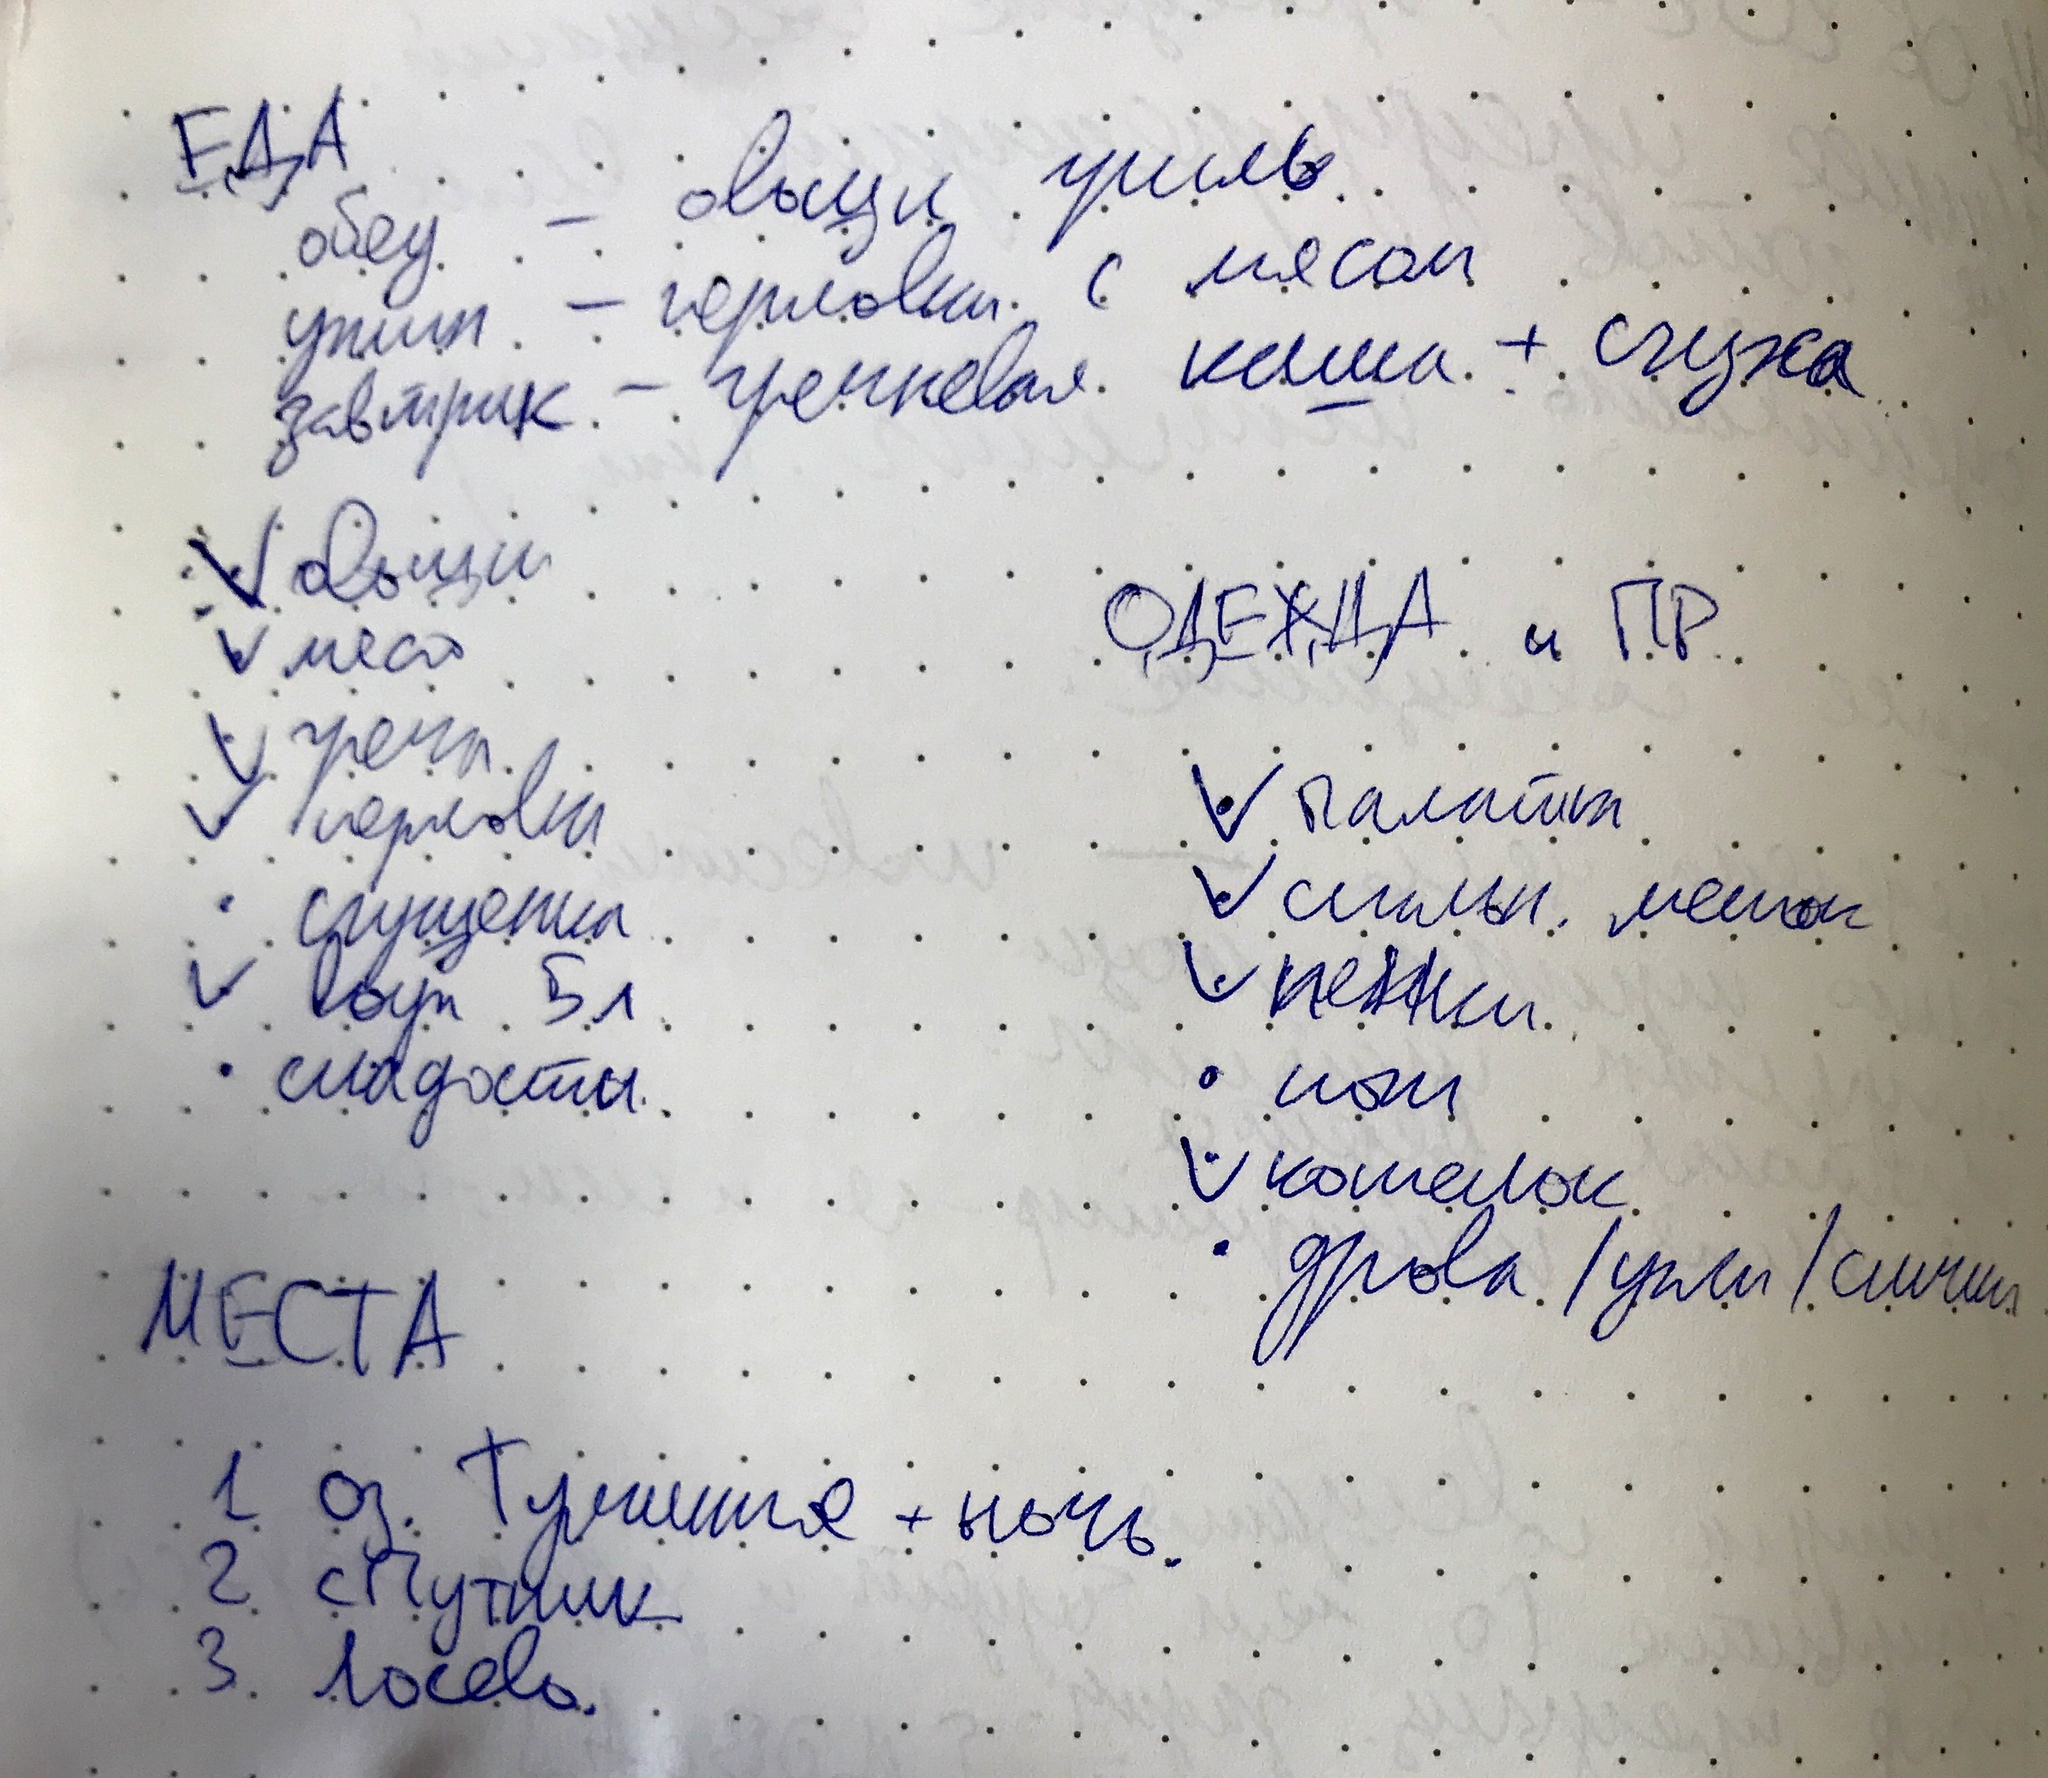 ЕДА
обед - овощи гриль
ужин - перловка с мясом
завтрак - гречневая каша + сгущка
овощи
мясо
греча
перловка
сгущенка
вода 5л
сладости
ОДЕЖДА и ПР.
палатка
спальн. мешок
пенки
нож
котелок
дрова / угли / спички
МЕСТА
1 оз. + ночь.
2 спутник
3 Лосево.